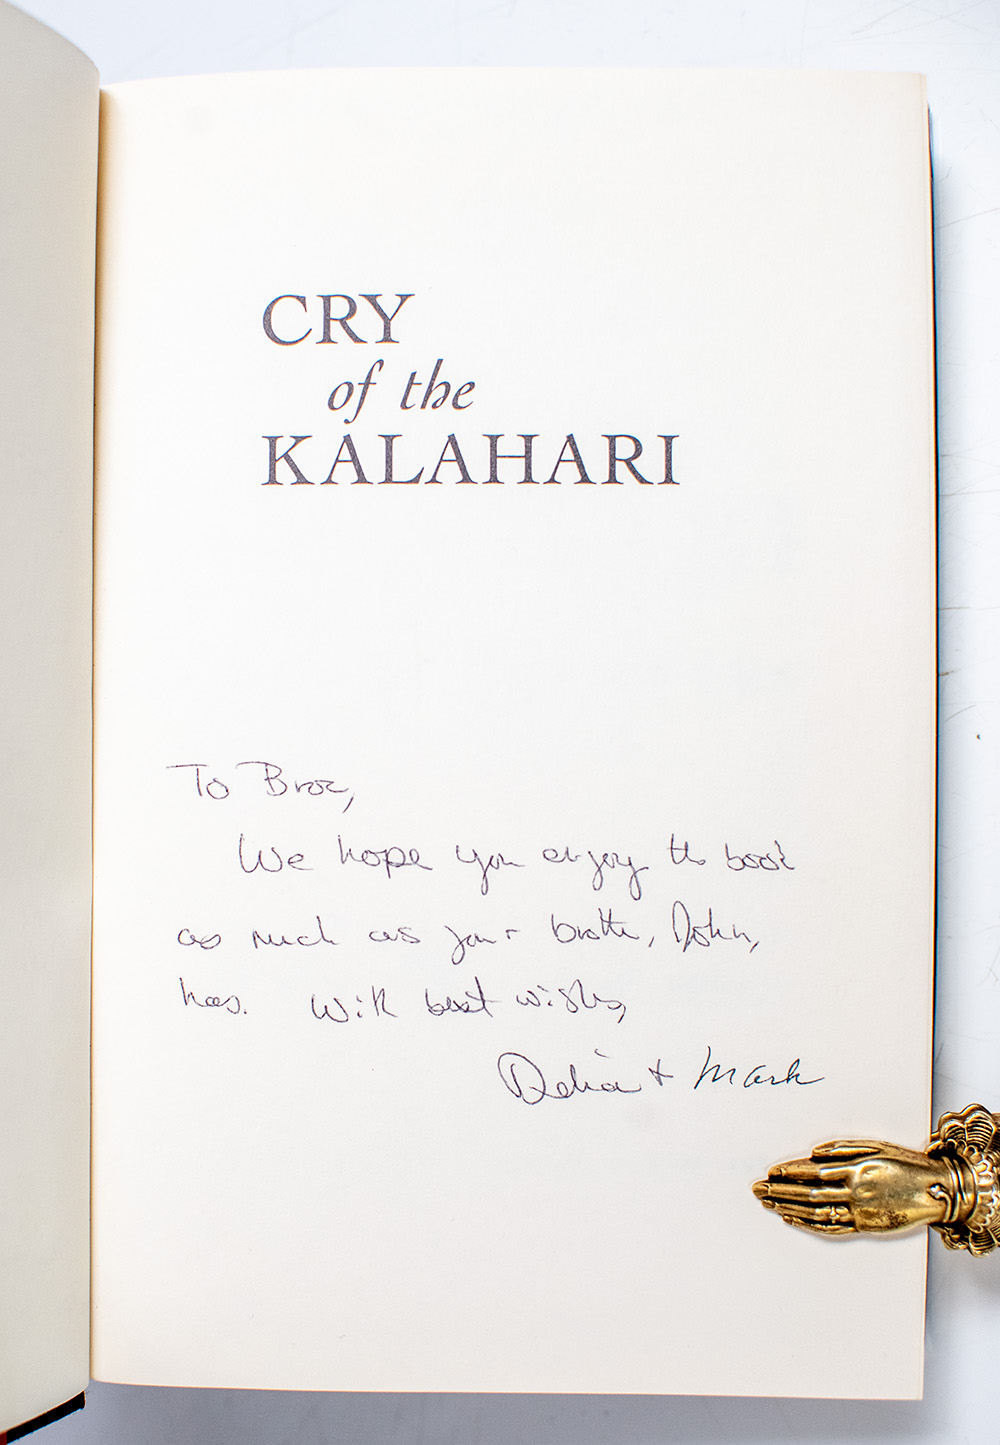 CRY
of the
KALAHARI
To Broz,
We hope you enjoy the book
as much as your brother, John,
has. With best wishes,
Delia + Mark